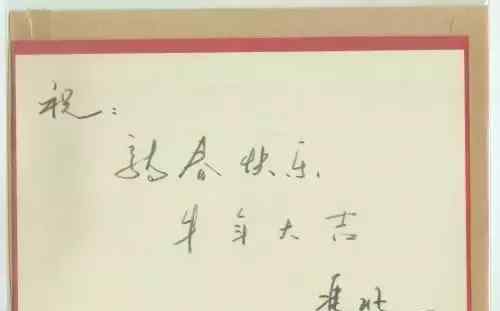 祝：
新春快乐
牛年大吉